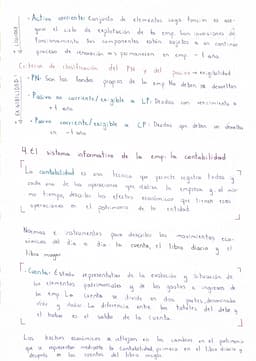 · Activo corriente: Conjunto de elementos cuya función es ase-
gurar el ciclo de explotación de la emp. Son inversiones de
funcionamiento. Sus componentes están sujetos a un continuo
proceso de renovación, permanecen en emp. - 1 año
+ LIQUIDEZ
Criterios de clasificación del PN y del pasivo → exigibilidad
· PN: Son los fondos propios de la emp. No deben ser devueltos
· Pasivo no corriente / exigible a LP: Deudas con vencimiento a
+1 año
· Pasivo corriente / exigible a CP: Deudas que deben ser devueltas
en -1 año
+ EXIGIBILIDAD
4. El sistema informativo de la emp: la contabilidad
La contabilidad es una técnica que permite registrar todas y
cada una de las operaciones que realiza la empresa y, al mis-
mo tiempo, describir los efectos económicos que tienen esas
operaciones en el patrimonio de la entidad
Normas e instrumentos para describir los movimientos eco-
nómicos del día a día: la cuenta, el libro diario y el
libro mayor
· Cuenta: Estado representativo de la evolución y situación de
los elementos patrimoniales y de los gastos e ingresos de
la emp. La cuenta se divide en dos partes, denominadas
debe y haber. La diferencia entre los totales del debe y
el haber es el saldo de la cuenta.
Los hechos económicos se reflejan en los cambios en el patrimonio
que se representan mediante la contabilidad, primero en el libro diario y
después en las cuentas del libro mayor.